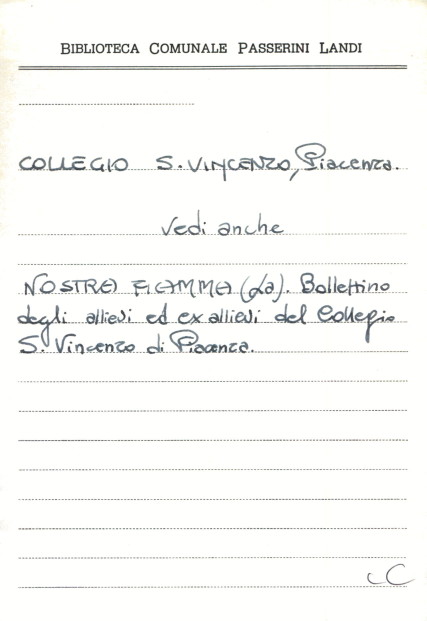 BIBLIOTECA COMUNALE PASSERINI LANDI
COLLEGIO S. VINCENZO, Piacenza.
Vedi anche
NOSTRA FIAMMA (La). Bollettino
degli allievi ed ex allievi del Collegio
S. Vincenzo di Piacenza.